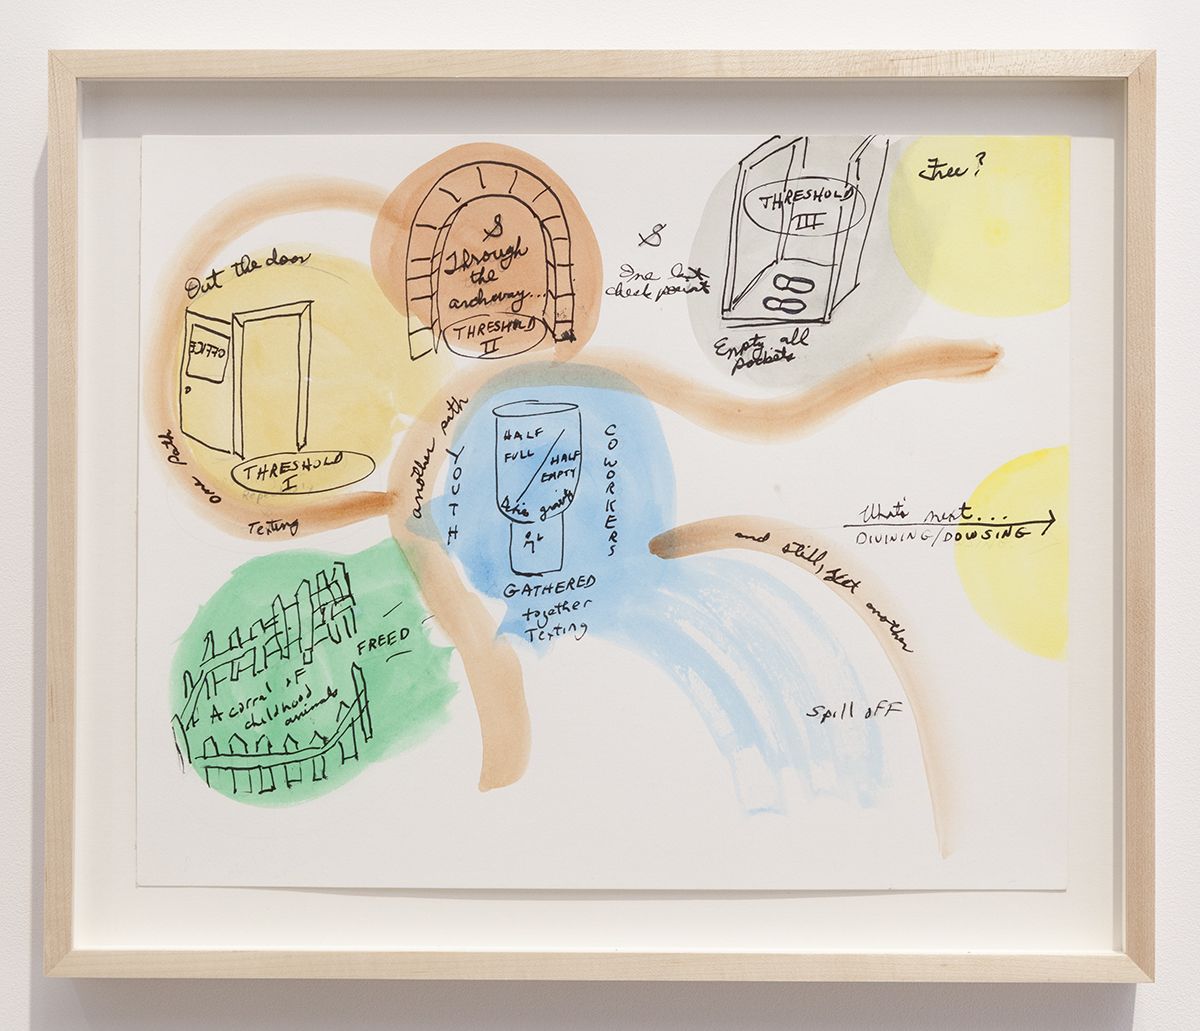 Out the door
OFFICE
THRESHOLD
I
Texting
One Path
&
Through
the
archway...
THRESHOLD
II
&
One last
check point
THRESHOLD
III
Empty all
pockets
Free?
another path
YOUTH
HALF
FULL
HALF
EMPTY
COWORKERS
GATHERED
together
Texting
What's next...
DIVINING/DOWSING
and still, yet another
Spill off
FREED
A corral of
childhood
animals